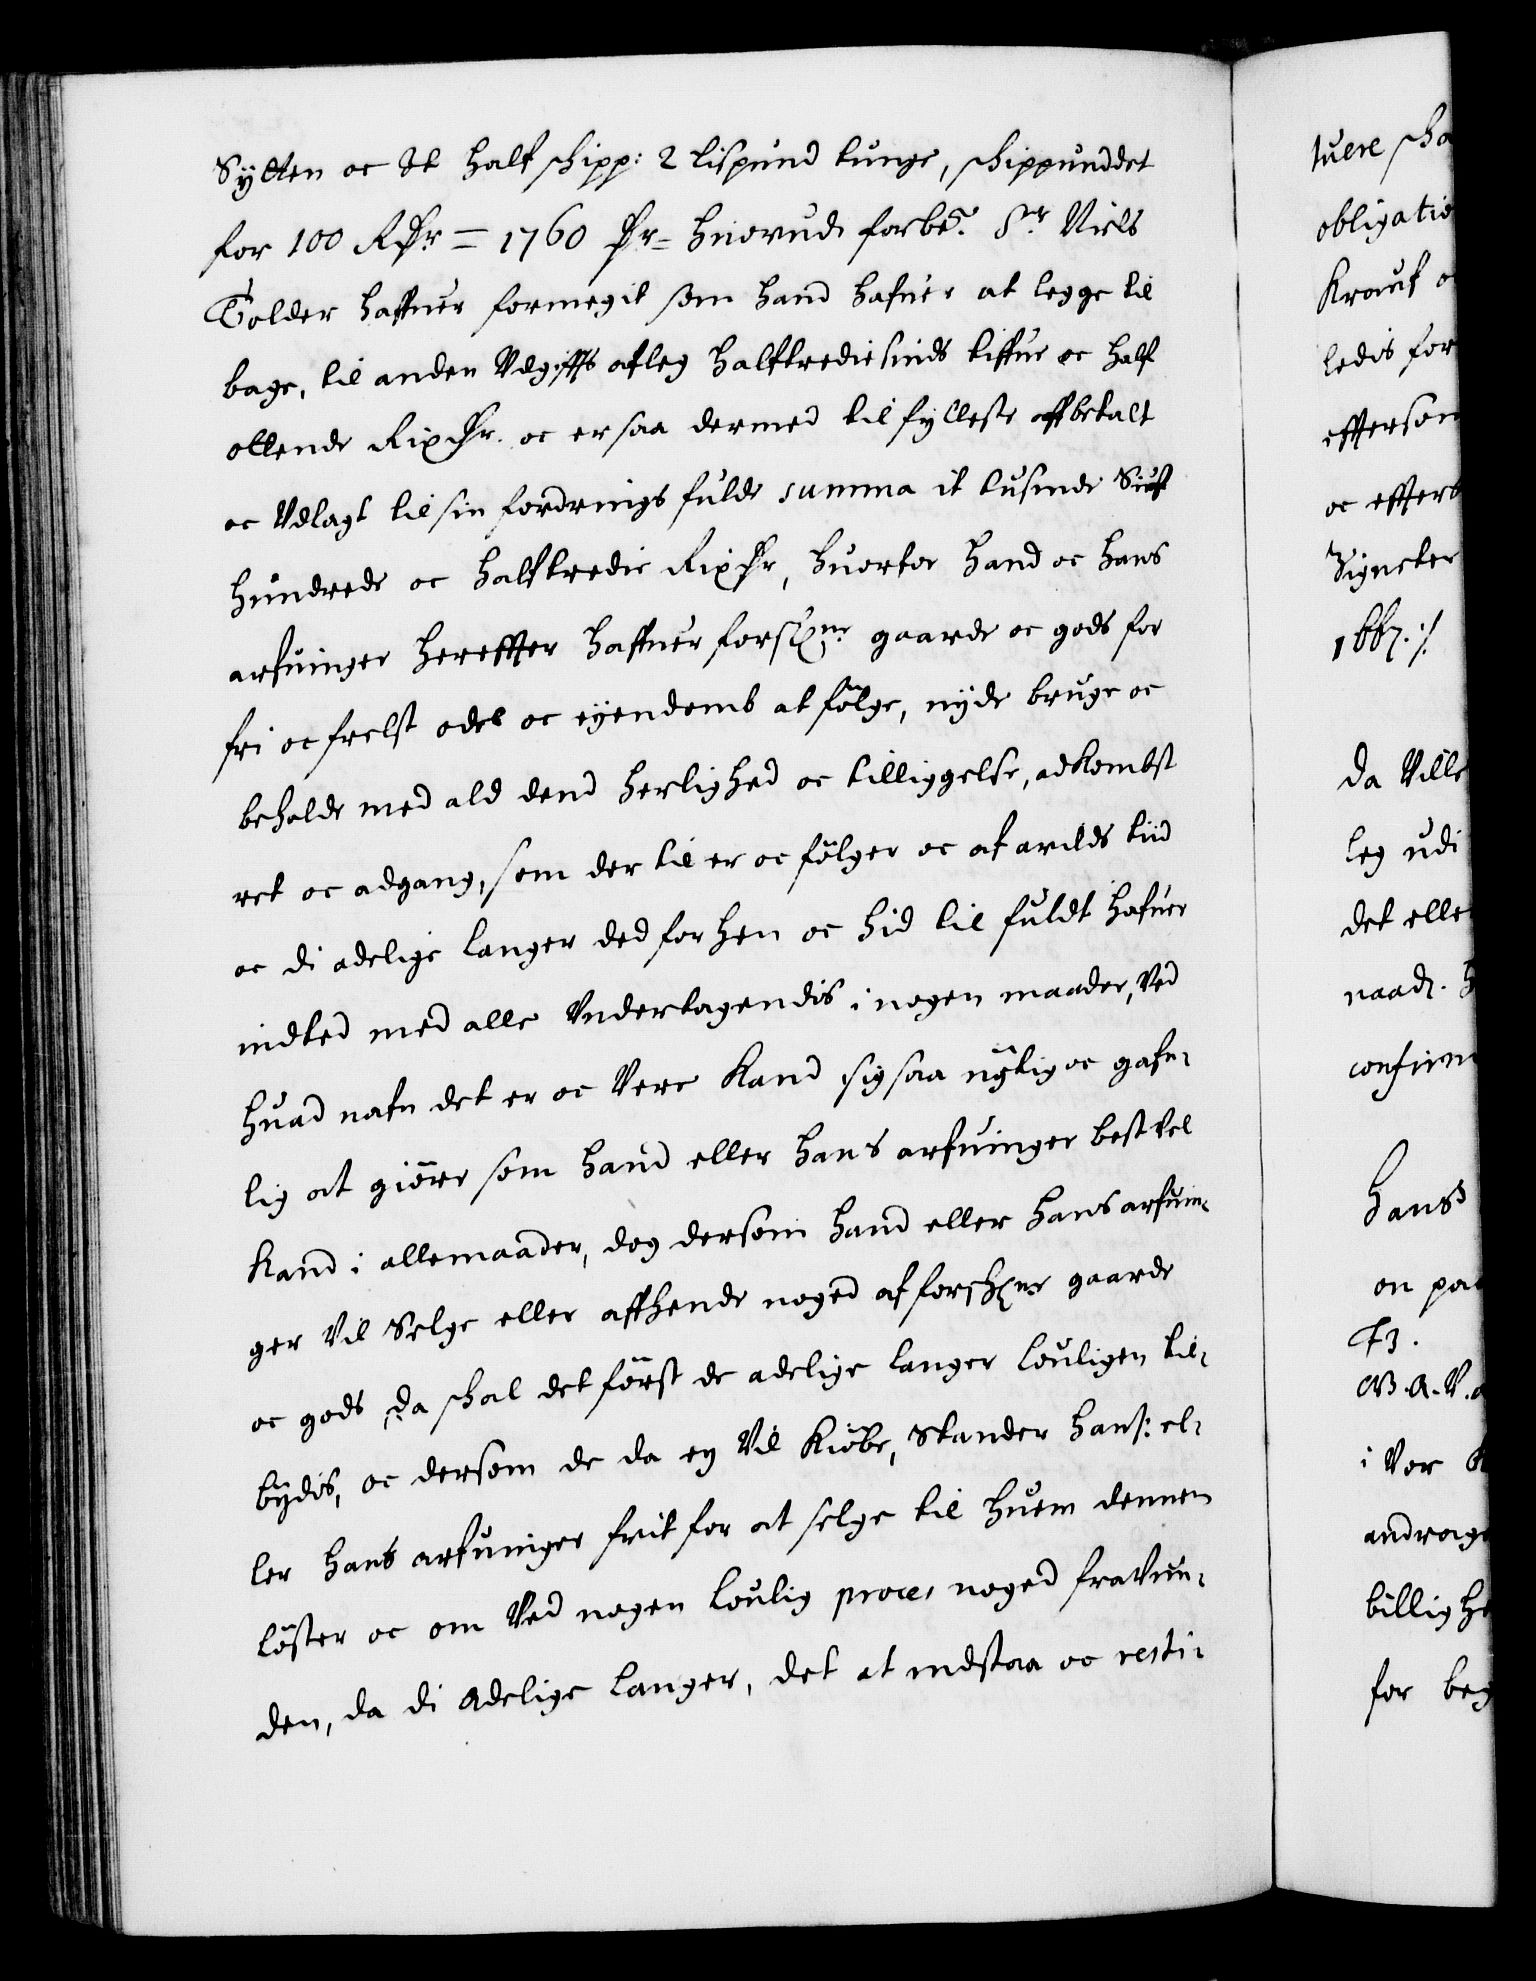 Sÿtten oc It half schipp: 2 lispund tunge, schippunddet
for 100 Rdr = 1760 dr= huorudi forbte. Sr. Niels
Tolder haffuer formegit som hand hafuer at legge til
bage, til anden Vdgiffts afleg halftrediesinds tiffue oc half
ottende Rixdr. oc er saa dermed til fylleste affbetalt
oc Vdlagt til sin fordrings fulde summa it tusinde Siuf
hundrede oc halftredie Rixdr, huorfor hand oc hans
arfuinger hereffter haffuer forschne gaarde oc gods for
fri oc frelst odel oc eÿendomb at fölge, nÿde bruge oc
beholde med ald dend herlighed oc tilliggelse, adkombst
ret oc adgang, som der til er oc fölger oc af arilds tiid
oc di adelige Langer ded forhen oc hid til fuldt hafuer
indted med alle Vndertagendis i nogen maader, Ved
huad nafn det er oc Vere Kand sig saa nÿtig oc gafn-
lig at giöre som hand eller hans arfuinger best vel
Kand i allemaader, dog dersom hand eller hans arfuin-
ger Vil Selge eller affhende noged af forschne gaarde
oc gods da schal det först de adelige Langer Louligen til-
bÿdis, oc dersom de da eÿ Vil Kiöbe, Stander hans: el-
ler hans arfuinger frit for at selge til huem dennem
löster oc om Ved nogen Loulig proces noged fraVun-
den, da di Adelige Langer, det at indstaa oc resti-
tuere scha
obligatio
Krauf o
ledis for
effterson
oc effters
Signeter
1667. ∕.
Da Ville
leg udi
det elle
naad.
confirm
Hans
on paa
F3.
i Vor
andrage
billighe
for beg